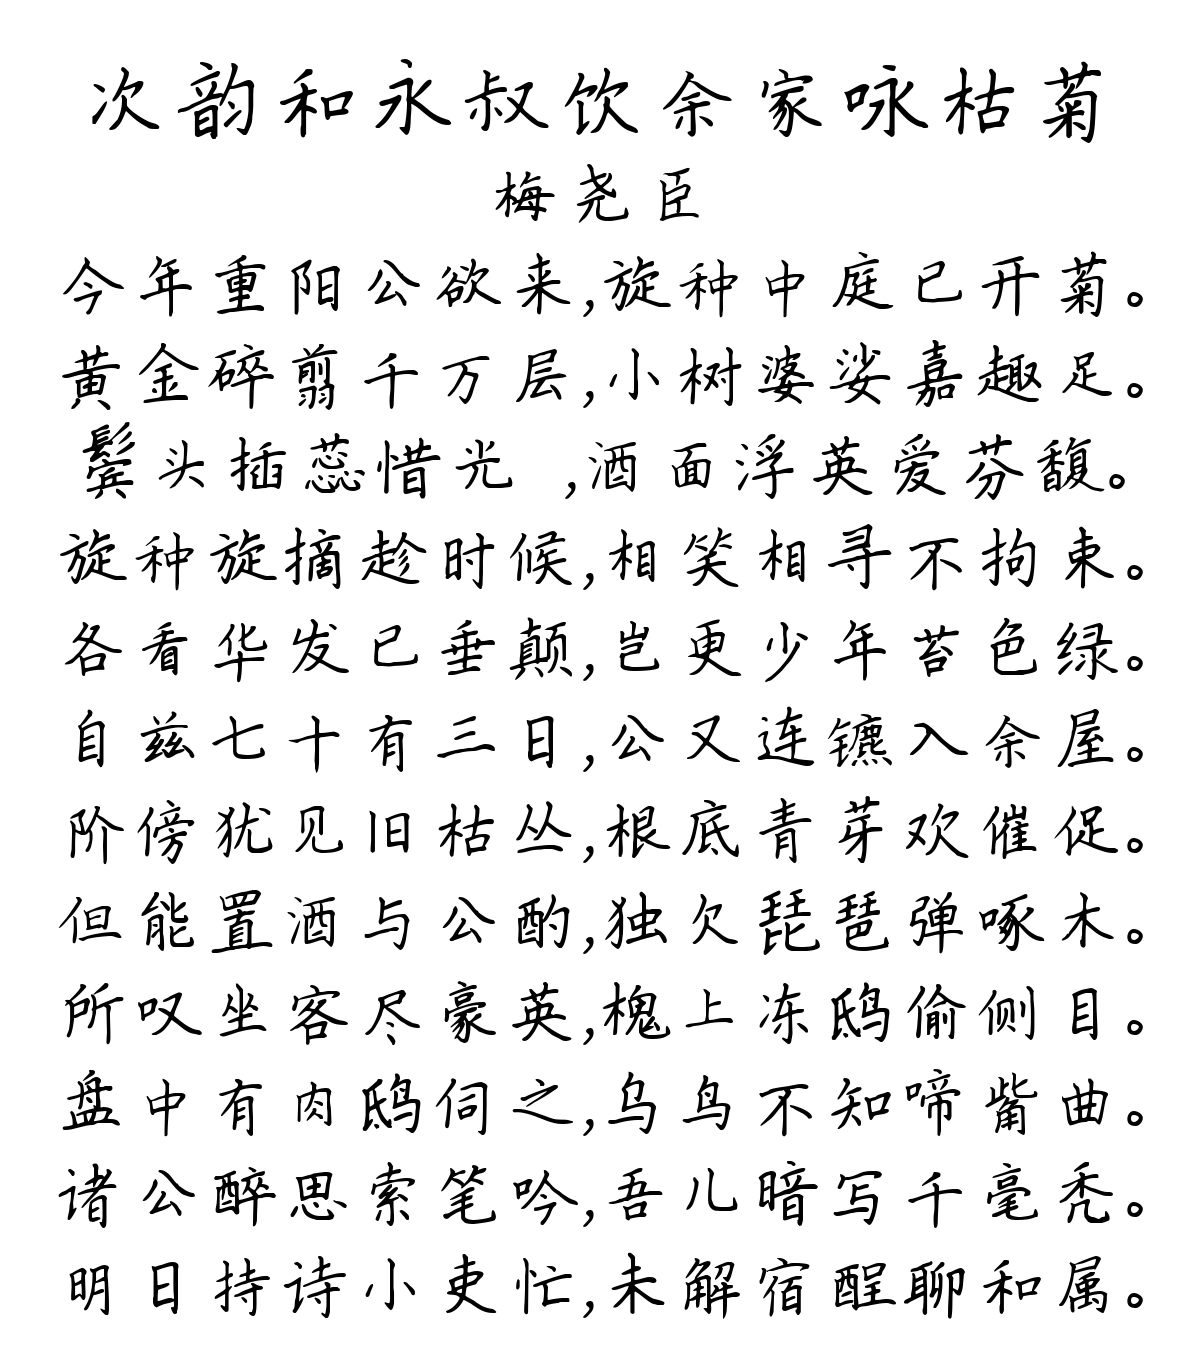 次韵和永叔饮余家咏枯菊
梅尧臣
今年重阳公欲来,旋种中庭已开菊。
黄金碎翦千万层,小树婆娑嘉趣足。
鬓头插蕊惜光 ,酒面浮英爱芬馥。
旋种旋摘趁时候,相笑相寻不拘束。
各看华发已垂颠,岂更少年苔色绿。
自兹七十有三日,公又连镳入余屋。
阶傍犹见旧枯丛,根底青芽欢催促。
但能置酒与公酌,独欠琵琶弹啄木。
所叹坐客尽豪英,槐上冻鸱偷侧目。
盘中有肉鸱伺之,乌鸟不知啼觜曲。
诸公醉思索笔吟,吾儿暗写千毫秃。
明日持诗小吏忙,未解宿酲聊和属。